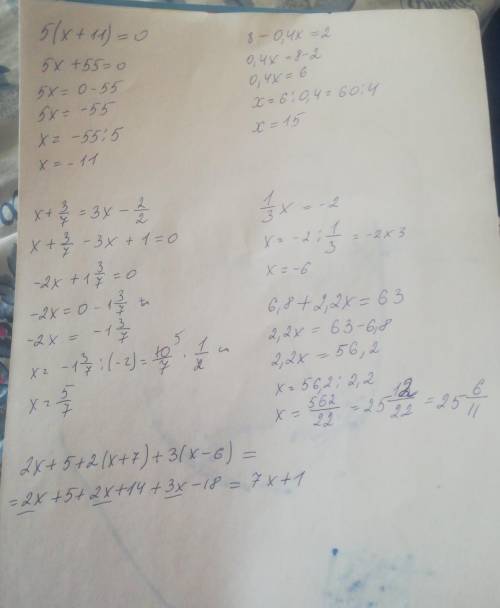 5(x+11)=0
5x+55=0
5x=0-55
5x=-55
x=-55:5
x=-11
8-0,4x=2
0,4x=8-2
0,4x=6
x=6:0,4=60:4
x=15
x+3/7=3x-2/2
x+3/7-3x+1=0
-2x+1 3/7=0
-2x=0-1 3/7
-2x=-1 3/7
x=-1 3/7:(-2)=10/7 5·1/2
x=5/7
1/3x=-2
x=-2:1/3=-2×3
x=-6
6,8+2,2x=63
2,2x=63-6,8
2,2x=56,2
x=562:2,2
x=562/22=25 12/22=25 6/11
2x+5+2(x+7)+3(x-6)=
=2x+5+2x+14+3x-18=7x+1